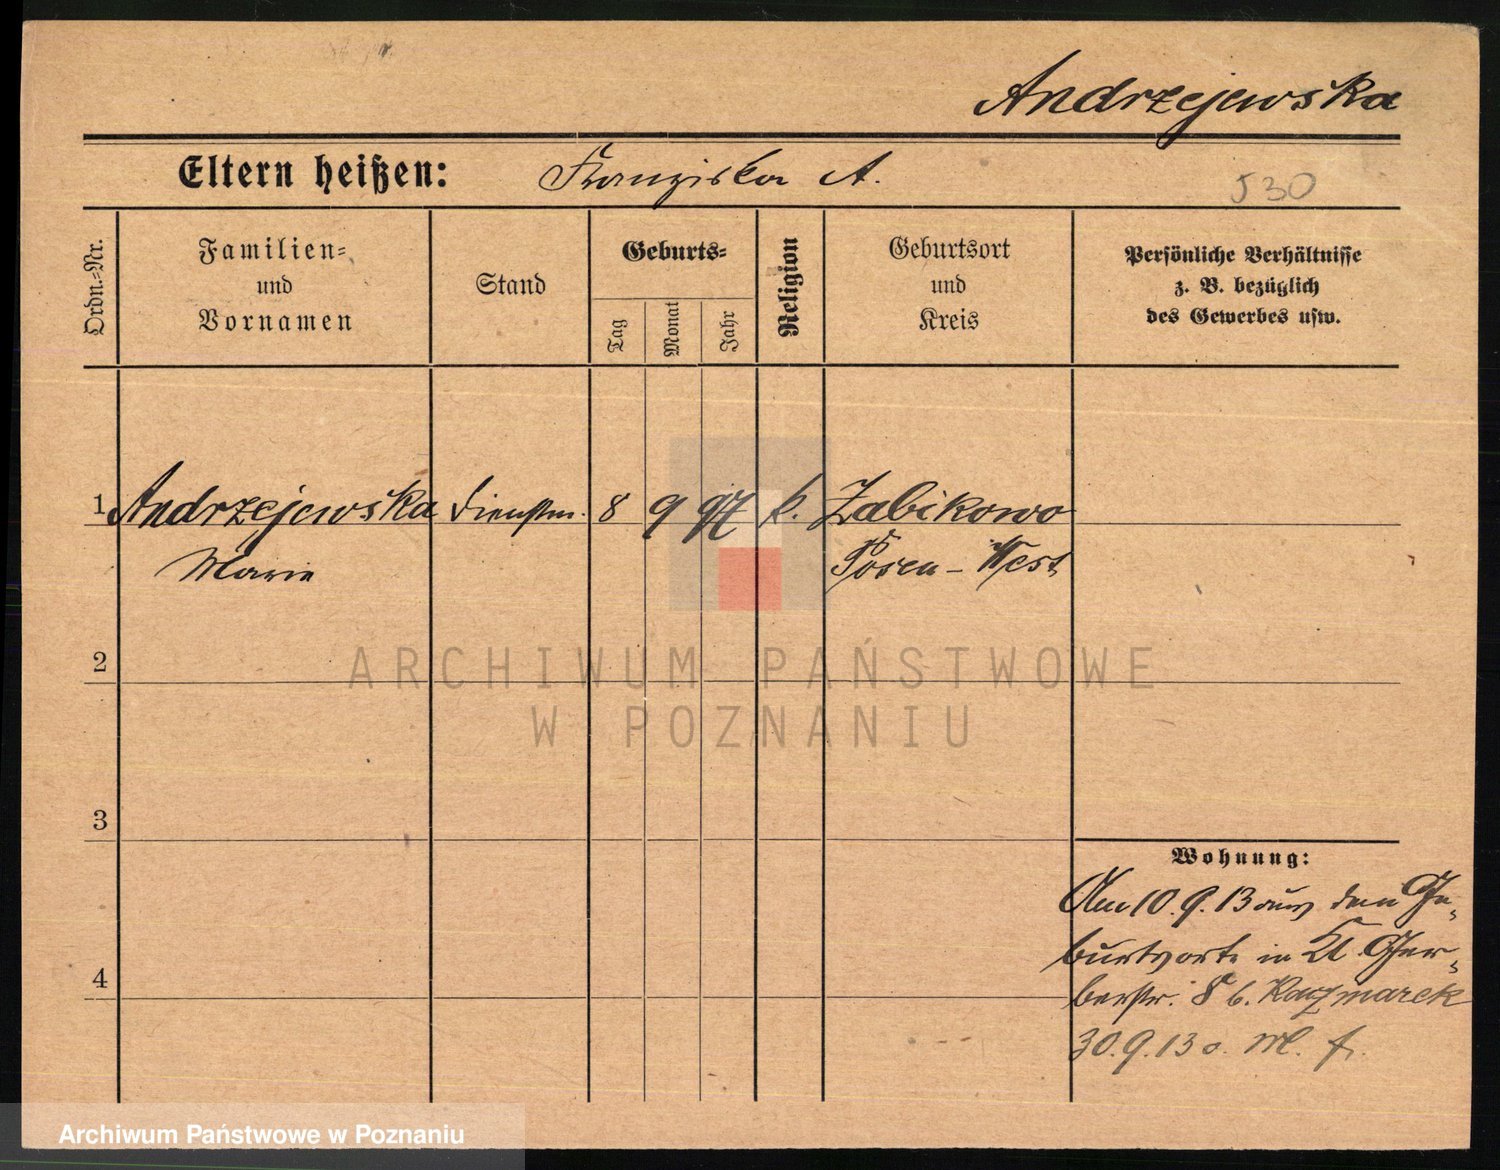 Andrzejewska
Eltern heißen: Franziska A.
530
Ordn.-Nr.
Familien=
und
Vornamen
Stand
Geburts=
Tag
Monat
Jahr
Religion
Geburtsort
und
Kreis
Persönliche Verhältnisse
z. B. bezüglich
des Gewerbes usw.
1 Andrzejewska Dienstm. 8 9 97 k. Zabikowo
Marie Posen - West
2
3
4
Wohnung:
Am 10.9.13 aus dem Ge-
burtsorte in Kl. Ger-
berstr. 8 b. Kaczmarek
30.9.13 o. M. f.
ARCHIWUM PAŃSTWOWE
W POZNANIU
Archiwum Państwowe w Poznaniu